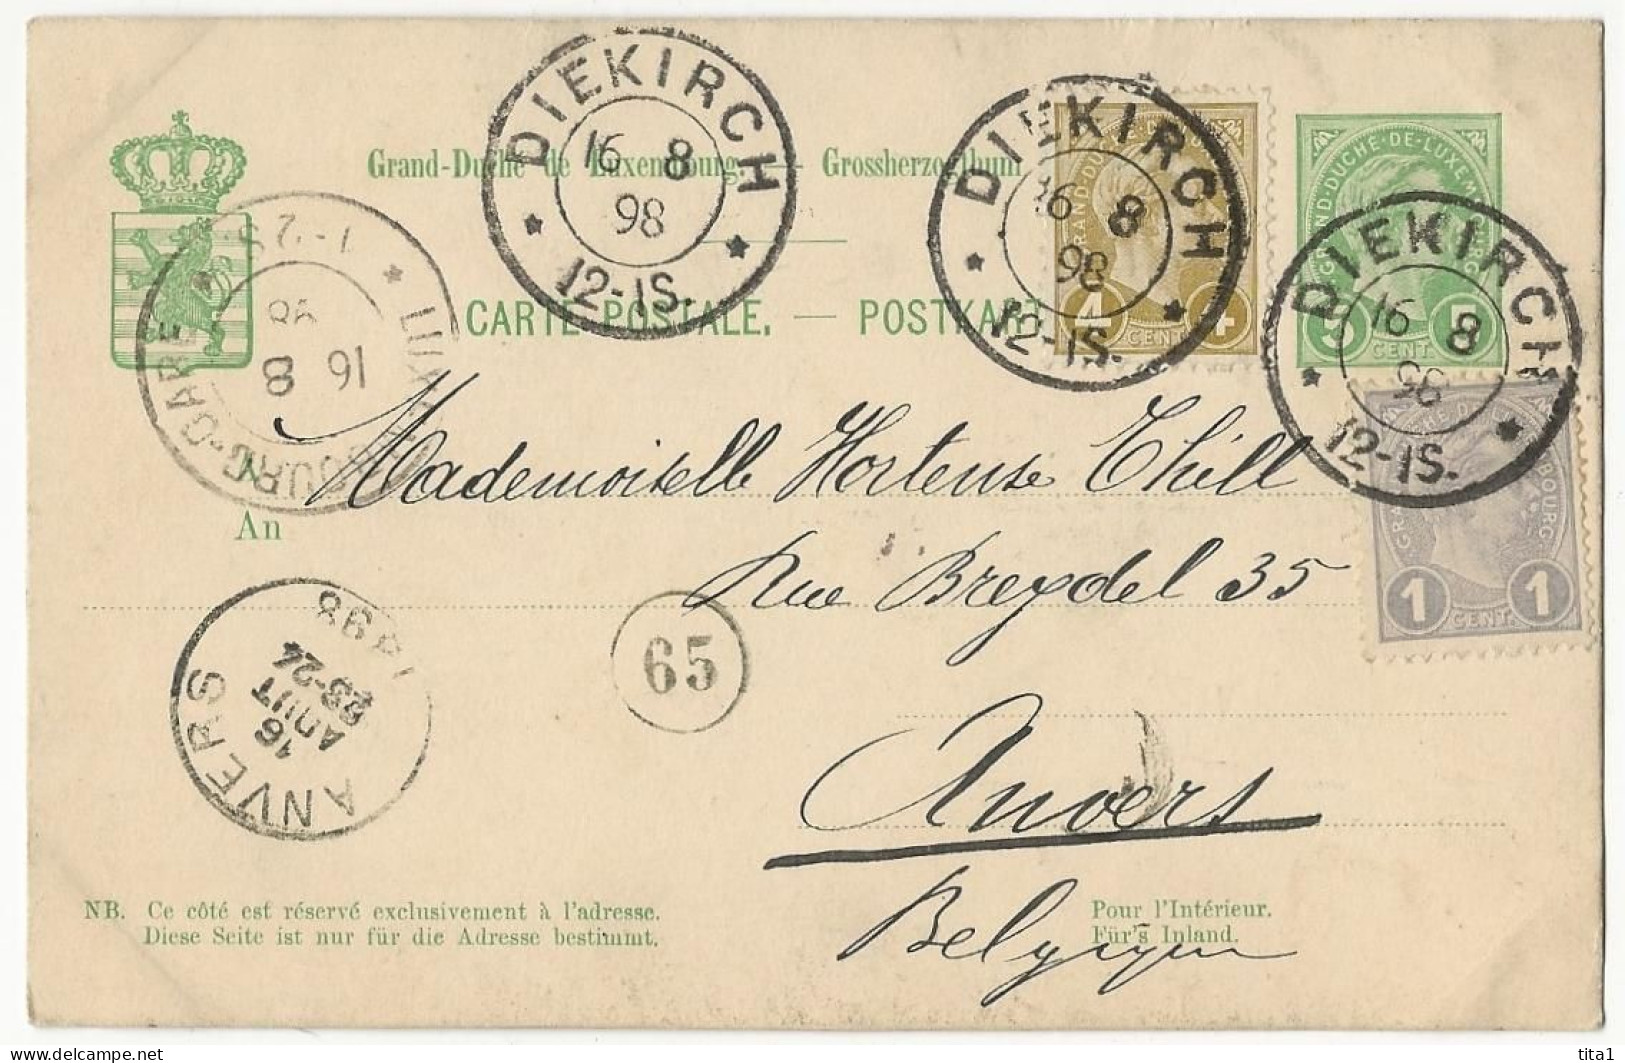 Grand-Duché de Luxembourg. — Grossherzogthum
CARTE POSTALE. — POSTKART
DIEKIRCH
16 8
98
12-1S.
DIEKIRCH
16 8
98
12-1S.
DIEKIRCH
16 8
98
12-1S.
GRAND-DUCHÉ
4 4
CENT.
GRAND-DUCHÉ-DE-LUXEMBOURG
5 5
CENT.
1 1
CENT.
1-2S.
98
16 8
BOURG-GARE
A
An
Mademoiselle Hortense Thill
Rue Breydel 35
Anvers
Belgique
65
ANVERS
16
AOUT
23-24
1898
NB. Ce côté est réservé exclusivement à l'adresse.
Diese Seite ist nur für die Adresse bestimmt.
Pour l'Intérieur.
Für's Inland.
delcampe.net
tita1